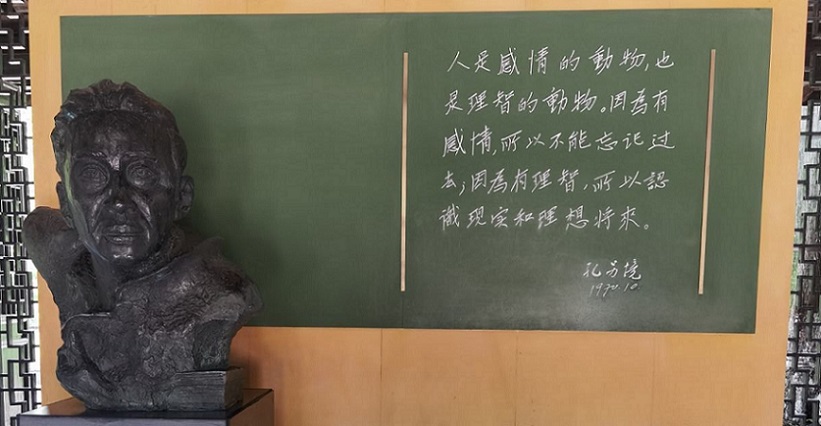 人是感情的動物,也
是理智的動物。因為有
感情,所以不能忘记过
去;因為有理智,所以認
識现实和理想將來。
孔另境
1970.10.